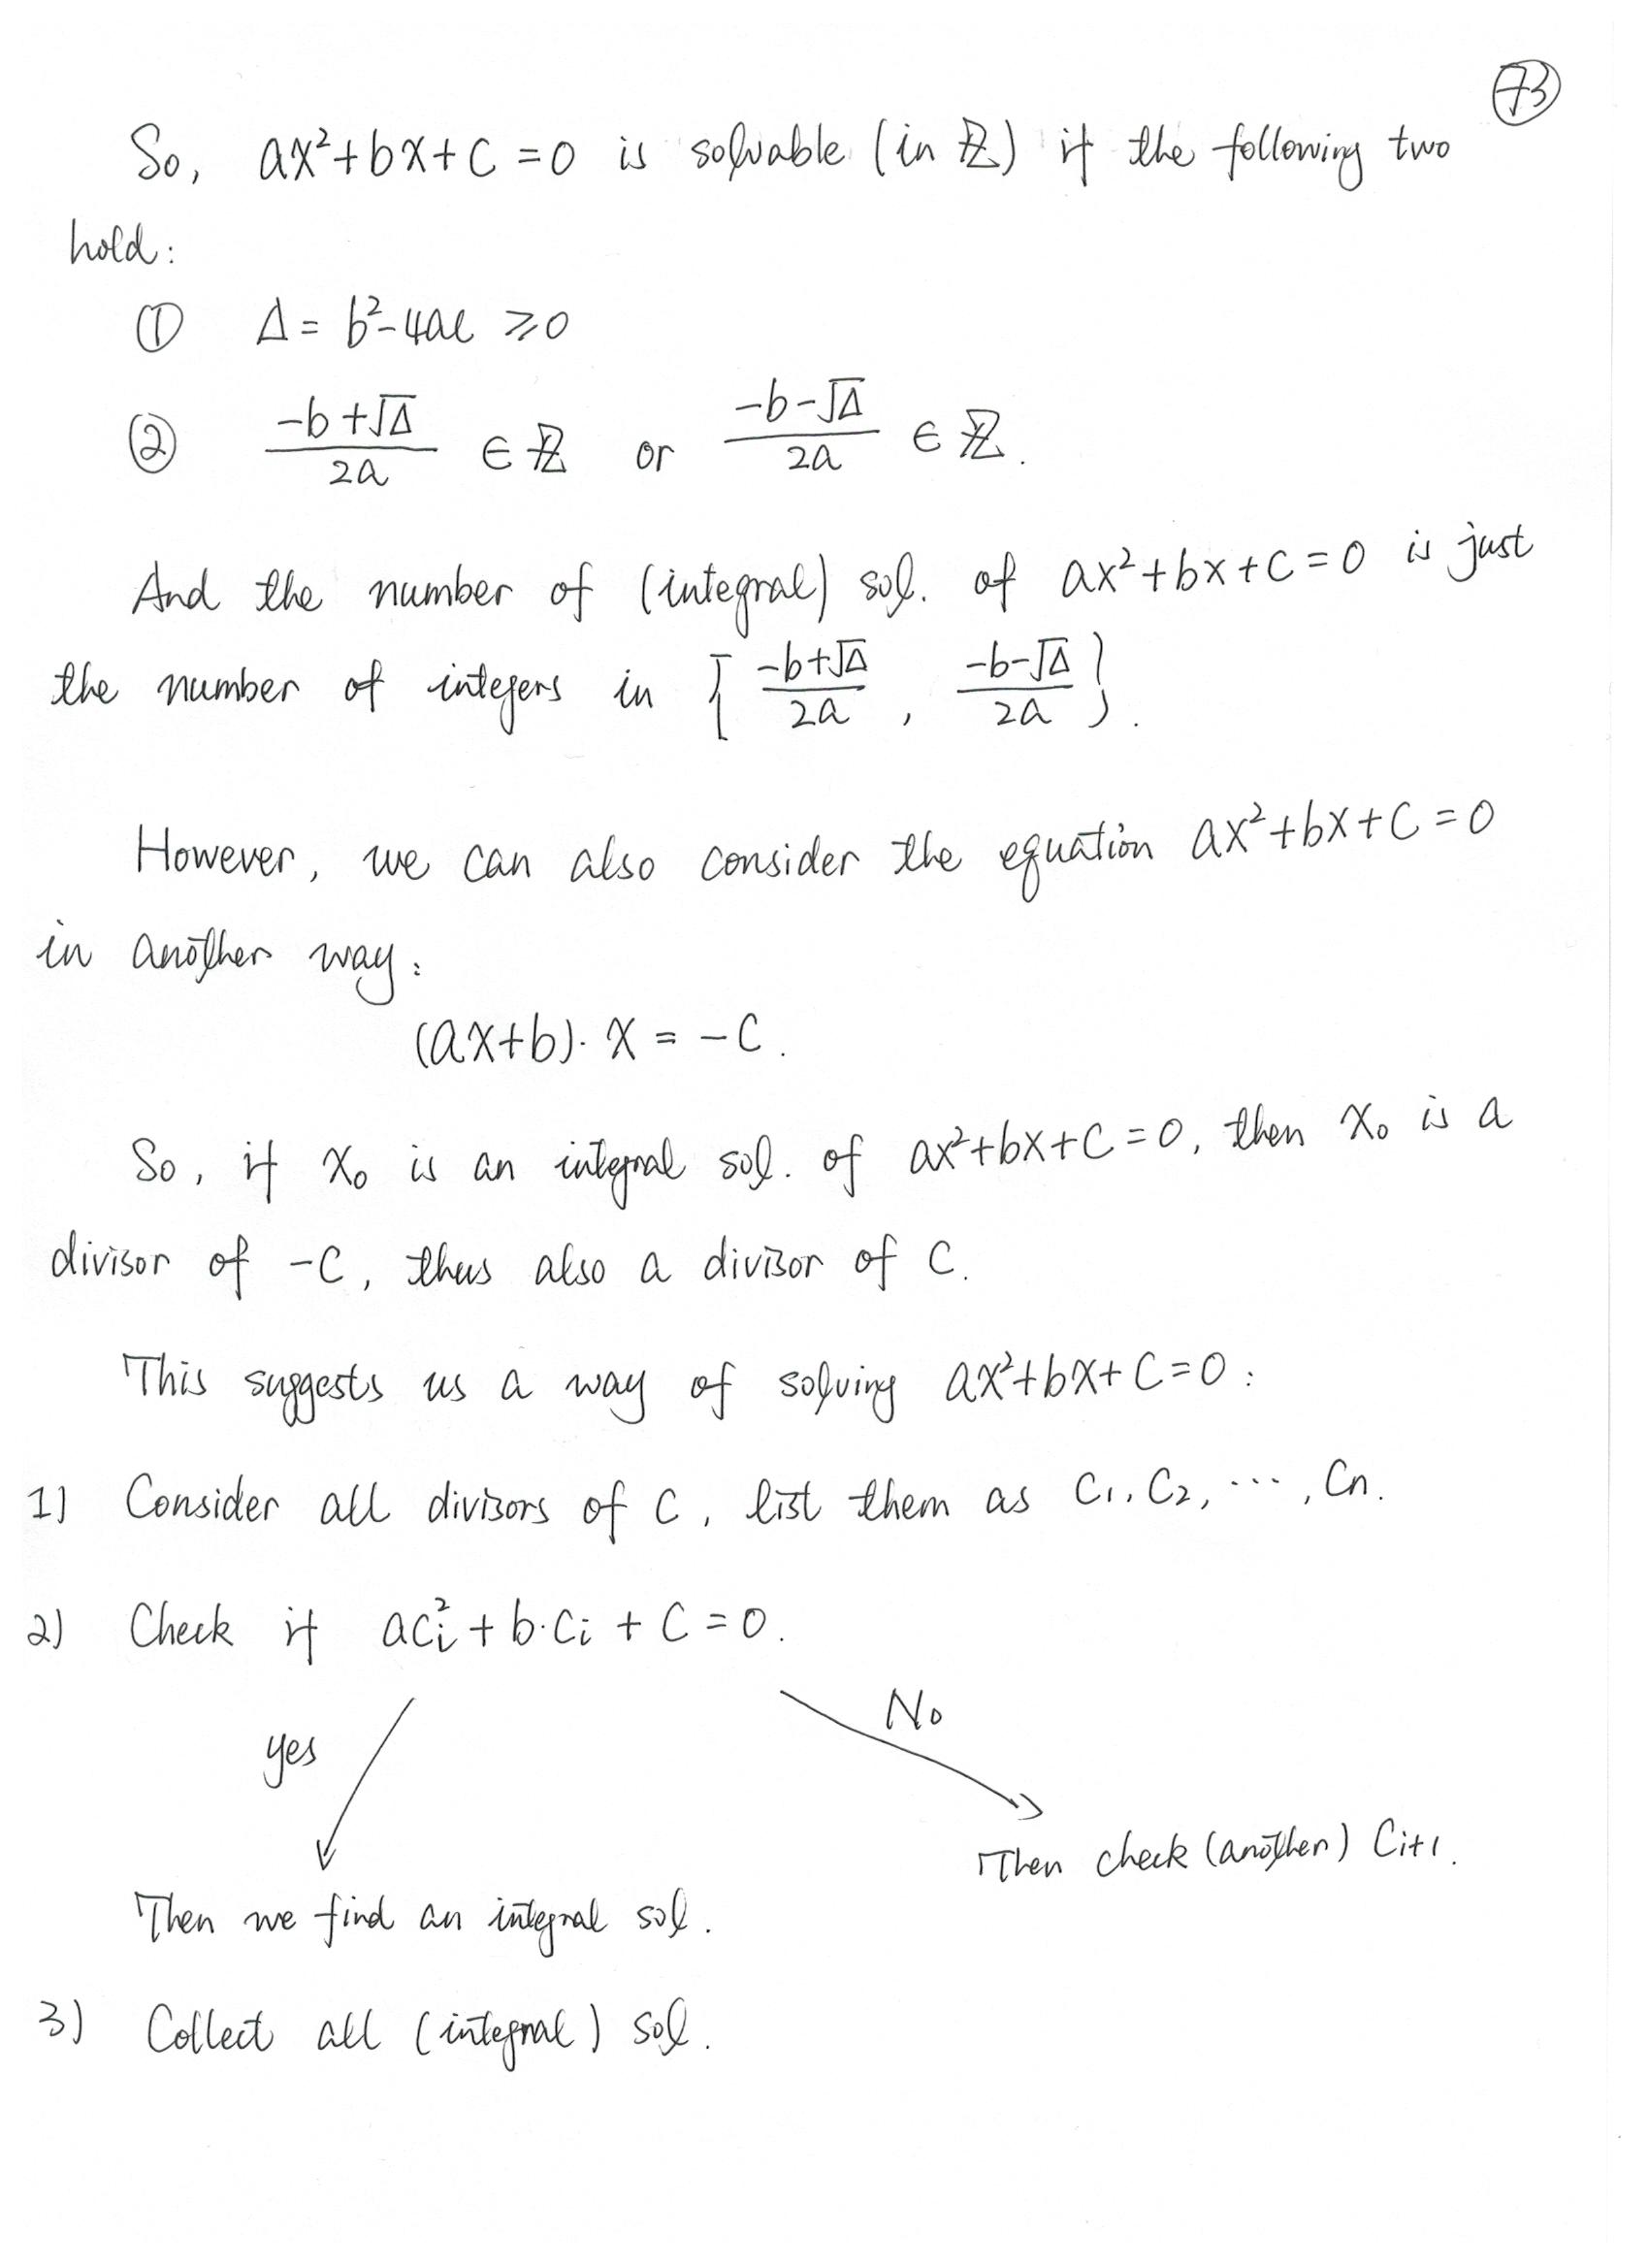 73
So, ax²+bx+c=0 is solvable (in ℤ) if the following two
hold:
① Δ = b²-4ac ≥0
② (-b+√Δ)/2a ∈ ℤ or (-b-√Δ)/2a ∈ ℤ.
And the number of (integral) sol. of ax²+bx+c=0 is just
the number of integers in { (-b+√Δ)/2a , (-b-√Δ)/2a }.
However, we can also consider the equation ax²+bx+c=0
in another way:
(ax+b)· x = -c.
So, if x₀ is an integral sol. of ax²+bx+c=0, then x₀ is a
divisor of -c, thus also a divisor of c.
This suggests us a way of solving ax²+bx+c=0:
1) Consider all divisors of c, list them as c₁, c₂, ···, cₙ.
2) Check if acᵢ²+b·cᵢ+c=0.
yes No
Then check (another) cᵢ₊₁.
Then we find an integral sol.
3) Collect all (integral) sol.